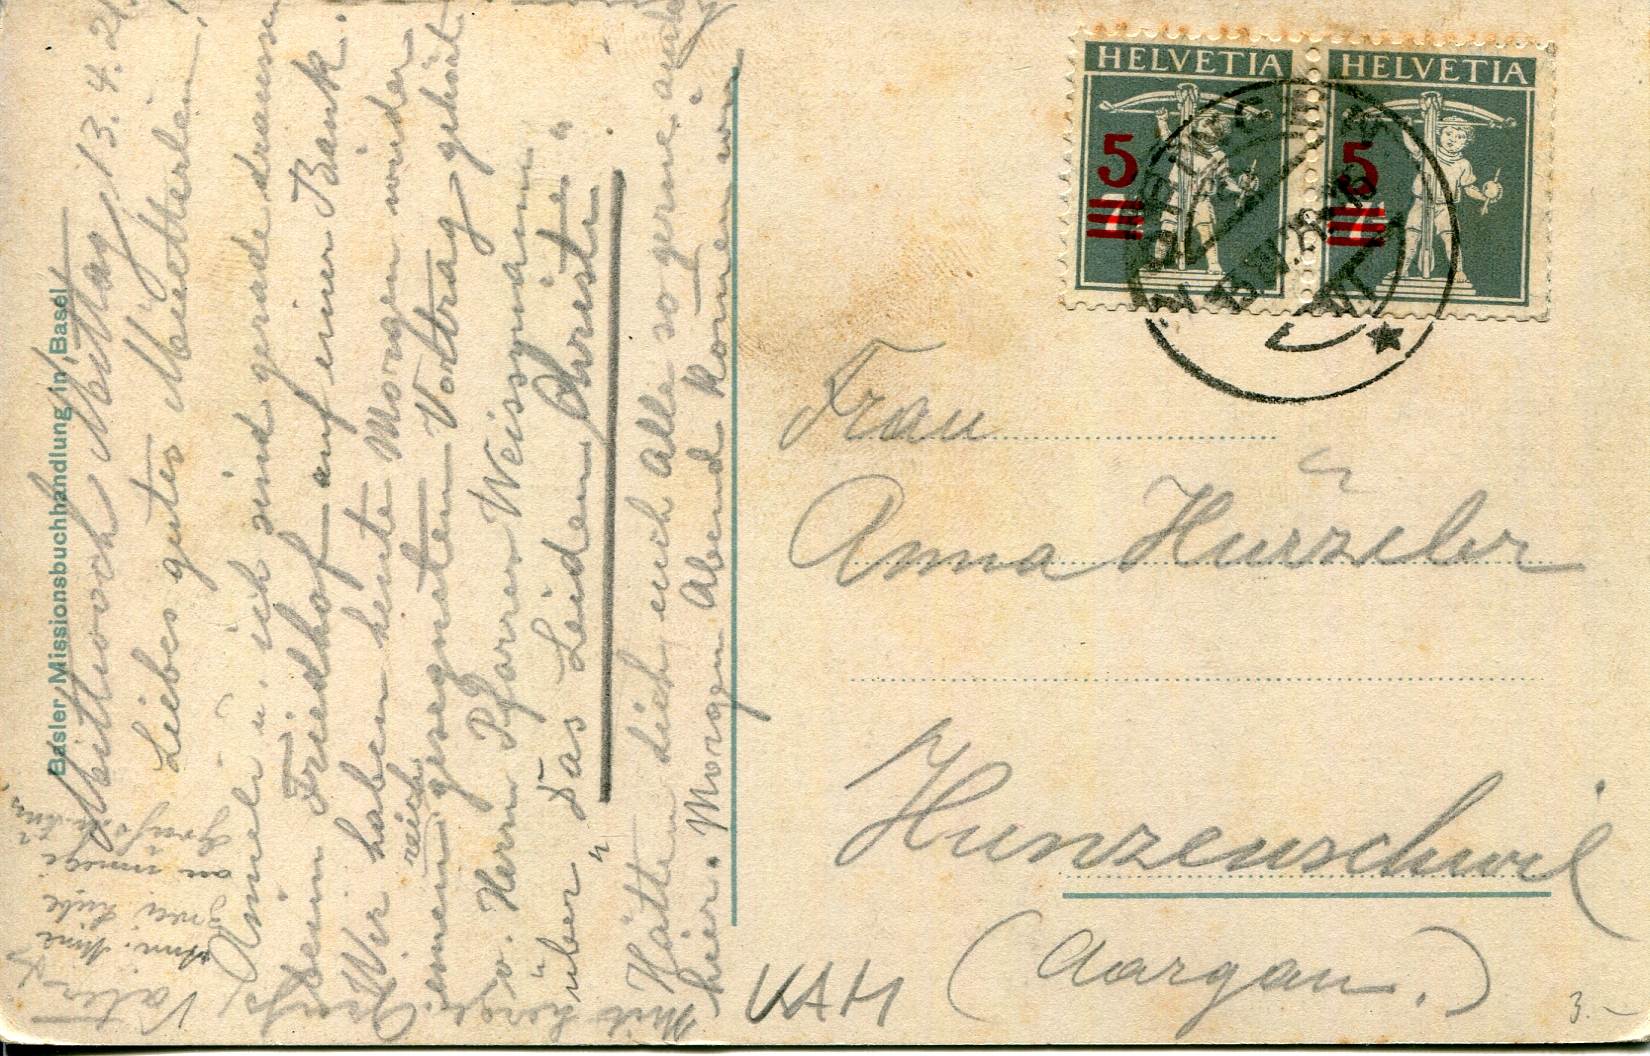 Basler Missionsbuchhandlung in Basel
Mittwoch Mittag 13.4.21.
Liebes gutes Mütterlein!
Anneli u. ich sind gerade draussen
beim Friedhof auf einer Bank.
Wir haben heute Morgen wieder
einen reich gesegneten Vortrag gehört
v. Herrn Pfarrer Weissmann
über "Das Leiden Christi"
Hätten dich, euch alle so gerne auch
hier. Morgen Abend kommen wir
HELVETIA
5
7
HELVETIA
5
7
Frau
Anna Hürzeler
Hunzenschwil
(Aargau.)
VAH
3.-